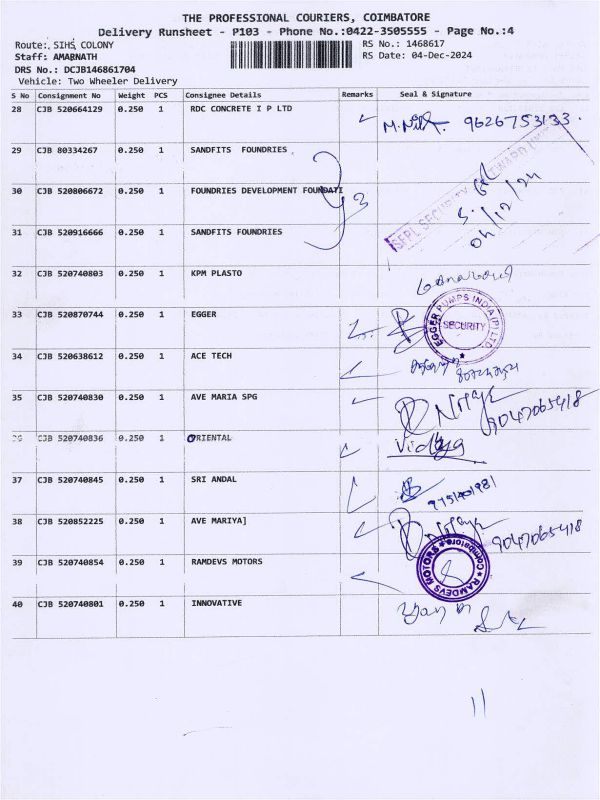 THE PROFESSIONAL COURIERS, COIMBATORE
Delivery Runsheet - P103 - Phone No.:0422-3505555 - Page No.:4
Route:. SIHS COLONY RS No.: 1468617
Staff: AMARNATH RS Date: 04-Dec-2024
DRS No.: DCJB146861704
Vehicle: Two Wheeler Delivery
S No Consignment No Weight PCS Consignee Details Remarks Seal & Signature
28 CJB 520664129 0.250 1 RDC CONCRETE I P LTD 9626753133.
29 CJB 80334267 0.250 1 SANDFITS FOUNDRIES
30 CJB 520806672 0.250 1 FOUNDRIES DEVELOPMENT FOUNDATI
04/12/24
SFPL SECURITY
31 CJB 520916666 0.250 1 SANDFITS FOUNDRIES
32 CJB 520740803 0.250 1 KPM PLASTO
33 CJB 520870744 0.250 1 EGGER
EGGER PUMPS INDIA (P) LTD
SECURITY
34 CJB 520638612 0.250 1 ACE TECH
35 CJB 520740830 0.250 1 AVE MARIA SPG 9047065418
36 CJB 520740836 0.250 1 ORIENTAL Vidhya
37 CJB 520740845 0.250 1 SRI ANDAL
38 CJB 520852225 0.250 1 AVE MARIYA] 9047065418
39 CJB 520740854 0.250 1 RAMDEVS MOTORS
RAMDEVS MOTORS Coimbatore
40 CJB 520740801 0.250 1 INNOVATIVE